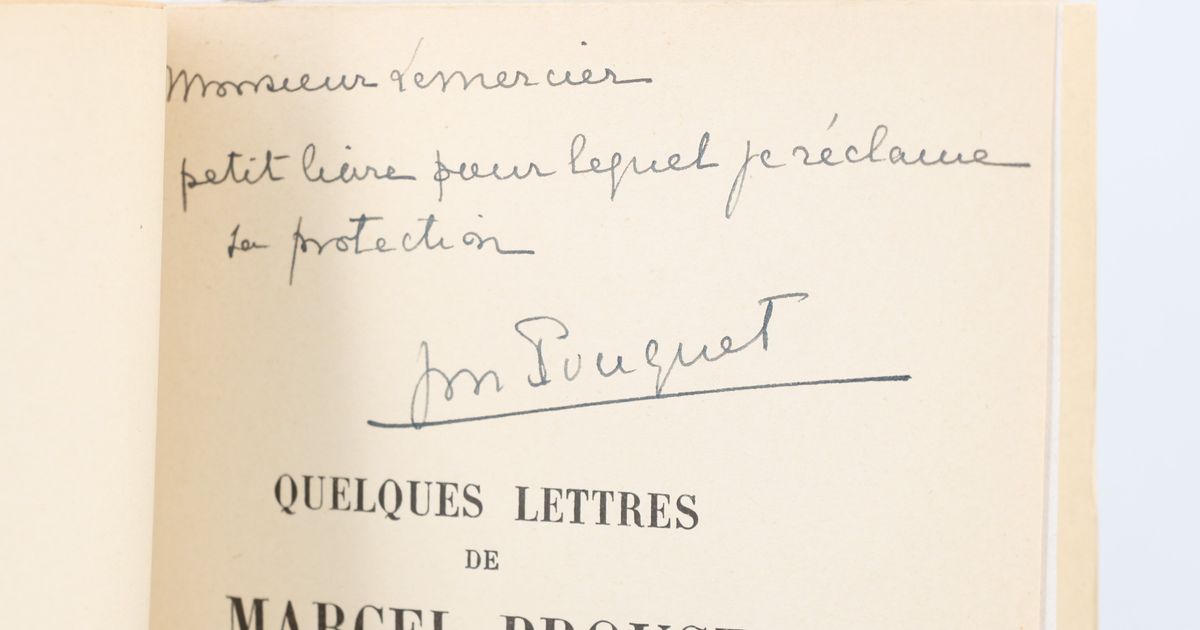 Monsieur Lemercier
petit livre pour lequel je réclame
sa protection
Jnn Pouquet
QUELQUES LETTRES
DE
MARCEL PROUST